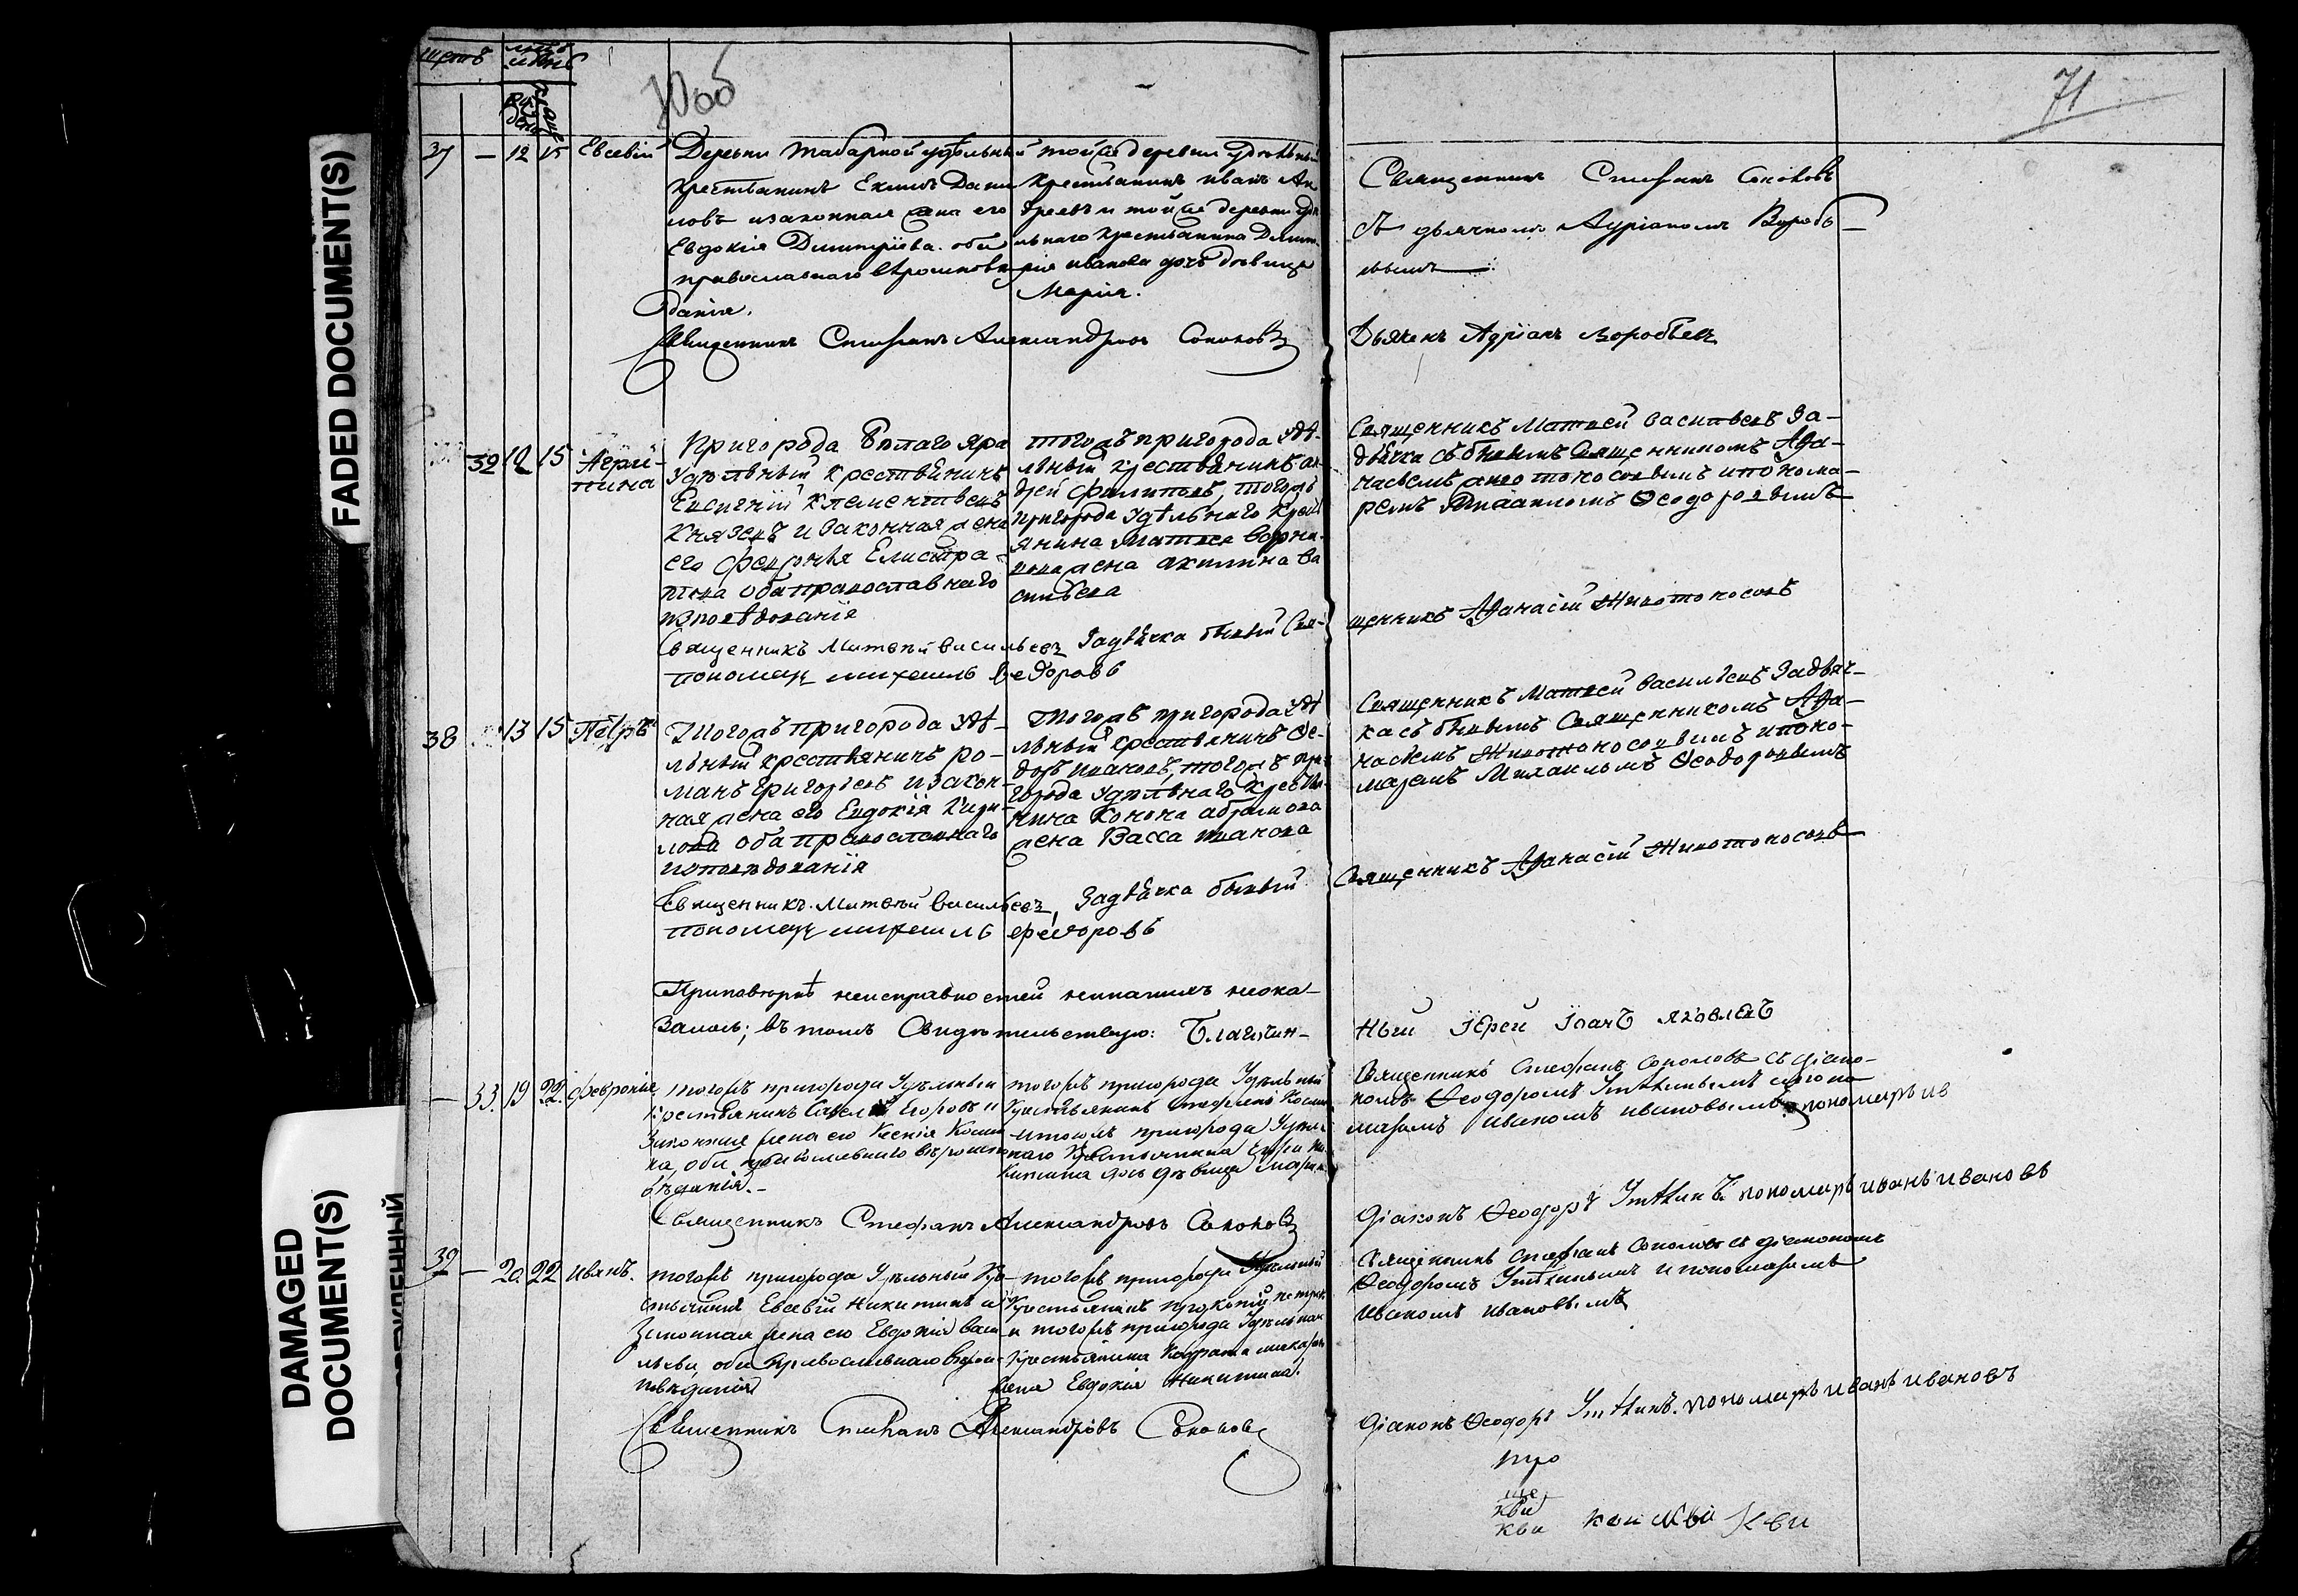 FADED DOCUMENT(S)
DAMAGED
DOCUMENT(S)
щетъ
рож
дені
70об
71
37 — 12 15 Евсевій
Деревни Табарной удѣльный
крестьянинъ Екимъ Дани
ловъ и законная жена его
Евдокія Димитріева. оба
православнаго вѣроисповѣ
данія.
той же деревни удѣльный
крестьянинъ Иванъ Ан
дреевъ и той же деревни удѣ
льнаго крестьянина Димит
рія Иванова дочь дѣвица
Марія.
Священникъ Стефанъ Соколовъ
съ дьячкомъ Адріаномъ Воробь
евымъ
Священникъ Стефанъ Александровъ Соколовъ
Дьячекъ Адріанъ Воробьевъ
32 12 15 Агрип-
пина
Пригорода Бѣлаго Яра
удѣльный крестьянинъ
Евсигній Клементьевъ
Князевъ и законная жена
его Февронья Елистра-
това оба православнаго
исповѣдованія
тогожъ пригорода удѣ-
льный крестьянинъ ан
дрей филиповъ, тогожъ
пригорода удѣльнаго крест
янина Матвея
жена акилина Ва
сильева
Священникъ Матвей Васильевъ За-
двѣчка съ бывшимъ Священникомъ Афа-
насьемъ Животоносовымъ и понома-
ремъ Михаиломъ Ѳеодоровымъ
Священникъ Матвѣй Васильевъ Задвѣчка бывый Свя-
щенникъ Афанасій Животоносовъ
пономарь михаилъ Ѳедоровъ
38 13 15 Петръ
Тогожъ пригорода удѣ-
льный крестьянинъ ро-
манъ григорьевъ и закон-
ная жена его Евдокія Кири-
лова оба православнаго
исповѣдованія
Тогожъ пригорода удѣ
льный крестьянинъ Ѳе-
доръ Ивановъ, тогожъ при-
города удѣльнаго крестья-
нина Конона абрамова
жена Васса Иванова
Священникъ Матвей Васильевъ Задвѣч-
ка съ бывымъ Священникомъ Афа-
насьемъ Животоносовымъ и поно-
маремъ Михаиломъ Ѳеодоровымъ
Священникъ Матвѣй Васильевъ Задвѣчка бывый
Священникъ Афанасій Животоносовъ
пономарь михаилъ федоровъ
При повторкѣ неисправностей никакихъ неока-
залось; въ томъ Свидѣтельствую: Благочин-
ный Іерей Іоанъ Яковлевъ
— 33. 19 22. Февронія
тогожъ пригорода Удѣльный
крестьянинъ Савелій Егоровъ и
Законная жена его Ксенія Козми
на, оба православнаго вѣроиспо
вѣданія.
тогожъ пригорода Удѣльный
крестьянинъ Стефанъ Козмин
и тогожъ пригорода Удѣль
наго крестьянина
Никитина дочь дѣвица Марія
Священникъ Стефанъ Соколовъ съ діако-
номъ Ѳеодоромъ Утѣхинымъ и поно
маремъ Иваномъ Ивановымъ. пономарь ив
Священникъ Стефанъ Александровъ Соколовъ
Діаконъ Ѳеодоръ Утѣхинъ. пономарь иванъ ивановъ
39 — 20. 22 Иванъ.
тогожъ пригорода Удѣльный кре-
стьянинъ Евсевій Никитинъ и
Законная жена его Евдокія Васи
льева, оба Православнаго Вѣрои
повѣданія
тогожъ пригорода Удѣльный
крестьянинъ прокопій петровъ
и тогожъ пригорода Удѣльнаго
крестьянина Кодрата макарова
жена Евдокія Никитина.
Священникъ Стефанъ Соколовъ съ діакономъ
Ѳеодоромъ Утѣхинымъ и пономаремъ
Иваномъ Ивановымъ
Священникъ Стефанъ Александровъ Соколовъ
Діаконъ Ѳеодоръ Утѣхинъ. пономарь иванъ ивановъ
кви
кви кви кви кви